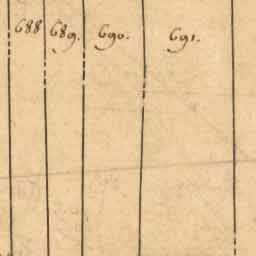 688 689. 690. 691.